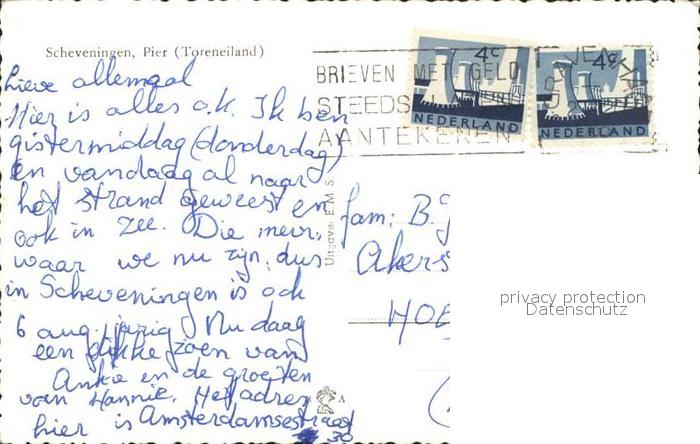 Scheveningen, Pier (Toreneiland)
Lieve allemaal
Hier is alles o.k. Ik ben
gistermiddag (donderdag)
en vandaag al naar
het strand geweest en
ook in zee. Die mevr.
waar we nu zijn, dus
in Scheveningen is ook
6 aug. jarig Nu daag
een dikke zoen van
Ankie en de groeten
van Hannie. Het adres
hier is Amsterdamsestraat
30
BRIEVEN MET GELD
STEEDS
AANTEKENEN
4c
NEDERLAND
4c
NEDERLAND
Uitgave: E M S
fam: B.
Akers
HOE
A
privacy protection
Datenschutz